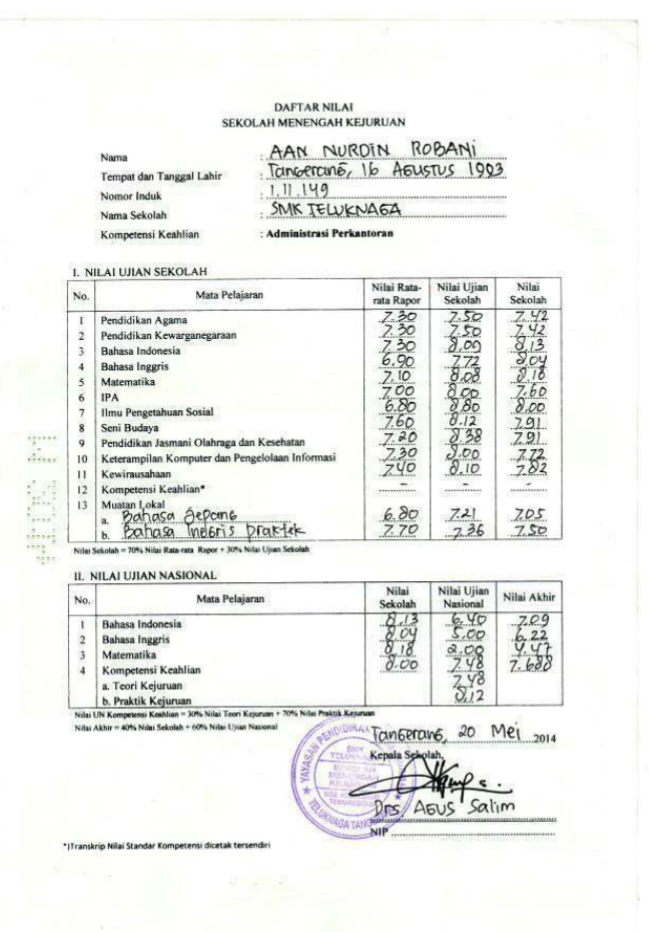 DAFTAR NILAI
SEKOLAH MENENGAH KEJURUAN
Nama : AAN NURDIN ROBANI
Tempat dan Tanggal Lahir : Tangerang, 16 AGUSTUS 1993
Nomor Induk : 1.11.149
Nama Sekolah : SMK TELUKNAGA
Kompetensi Keahlian : Administrasi Perkantoran
I. NILAI UJIAN SEKOLAH
No. Mata Pelajaran Nilai Rata-rata Rapor Nilai Ujian Sekolah Nilai Sekolah
1 Pendidikan Agama 7.30 7.50 7.42
2 Pendidikan Kewarganegaraan 7.30 7.50 7.42
3 Bahasa Indonesia 7.30 8.00 8.13
4 Bahasa Inggris 6.90 7.72 8.04
5 Matematika 7.10 8.08 8.18
6 IPA 7.00 8.00 7.60
7 Ilmu Pengetahuan Sosial 6.80 8.80 8.00
8 Seni Budaya 7.60 8.12 7.91
9 Pendidikan Jasmani Olahraga dan Kesehatan 7.20 8.38 7.91
10 Keterampilan Komputer dan Pengelolaan Informasi 7.30 8.00 7.72
11 Kewirausahaan 7.40 8.10 7.82
12 Kompetensi Keahlian* - - -
13 Muatan Lokal
a. Bahasa Jepang 6.80 7.21 7.05
b. Bahasa Inggris praktek 7.70 7.36 7.50
Nilai Sekolah = 70% Nilai Rata-rata Rapor + 30% Nilai Ujian Sekolah
II. NILAI UJIAN NASIONAL
No. Mata Pelajaran Nilai Sekolah Nilai Ujian Nasional Nilai Akhir
1 Bahasa Indonesia 8.13 6.40 7.09
2 Bahasa Inggris 8.04 5.00 6.22
3 Matematika 8.18 2.00 4.47
4 Kompetensi Keahlian 8.00 7.48 7.688
a. Teori Kejuruan 7.48
b. Praktik Kejuruan 8.12
Nilai UN Kompetensi Keahlian = 30% Nilai Teori Kejuruan + 70% Nilai Praktik Kejuruan
Nilai Akhir = 40% Nilai Sekolah + 60% Nilai Ujian Nasional
Tangerang, 20 Mei 2014
Kepala Sekolah,
YAYASAN PENDIDIKAN
SMK
MENENGAH
TELUKNAGA
Drs AGUS Salim
NIP
*)Transkrip Nilai Standar Kompetensi dicetak tersendiri